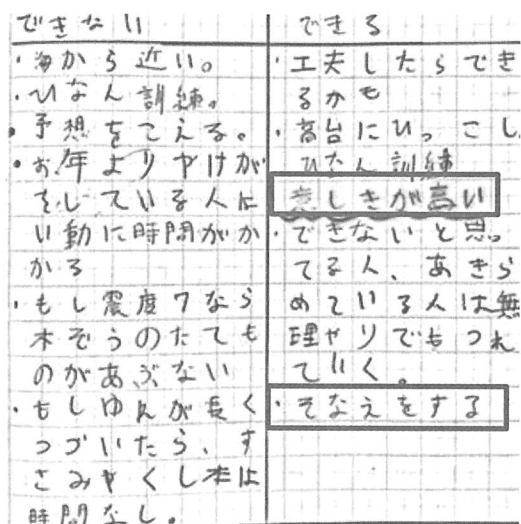 できない
・海から近い。
・ひなん訓練。
・予想をこえる。
・お年よりやけが
をしている人は
い動に時間がか
かる
・もし震度7なら
木ぞうのたても
のがあぶない
・もしゆれが長く
つづいたら、す
さみやくし本は
時間なし。
できる
・工夫したらでき
るかも
・高台にひっこし
ひなん訓練
意しきが高い
・できないと思っ
てる人、あきら
めている人は無
理やりでもつれ
ていく。
・そなえをする